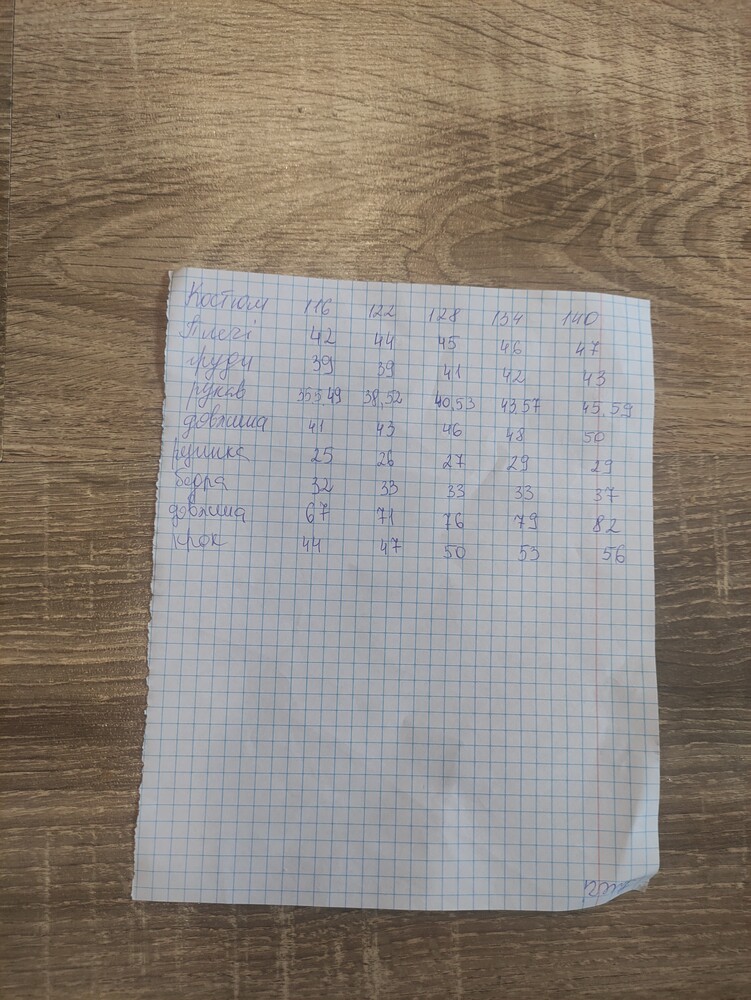 Костюм 116 122 128 134 140
Плечі 42 44 45 46 47
груди 39 39 41 42 43
рукав 35,5,49 38,52 40,53 43,57 45,59
довжина 41 43 46 48 50
резинка 25 26 27 29 29
бедра 32 33 33 33 37
довжина 67 71 76 79 82
крок 44 47 50 53 56